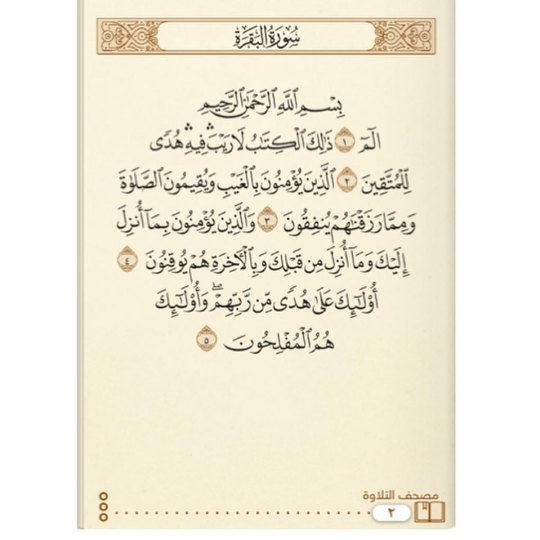 سُورَةُ البَقَرَةِ
بِسْمِ اللَّهِ الرَّحْمَٰنِ الرَّحِيمِ
الٓمٓ ١ ذَٰلِكَ الْكِتَٰبُ لَا رَيْبَ ۛ فِيهِ ۛ هُدًى
لِّلْمُتَّقِينَ ٢ الَّذِينَ يُؤْمِنُونَ بِالْغَيْبِ وَيُقِيمُونَ الصَّلَوٰةَ
وَمِمَّا رَزَقْنَٰهُمْ يُنفِقُونَ ٣ وَالَّذِينَ يُؤْمِنُونَ بِمَآ أُنزِلَ
إِلَيْكَ وَمَآ أُنزِلَ مِن قَبْلِكَ وَبِالْأٓخِرَةِ هُمْ يُوقِنُونَ ٤
أُوْلَٰٓئِكَ عَلَىٰ هُدًى مِّن رَّبِّهِمْ ۖ وَأُوْلَٰٓئِكَ
هُمُ الْمُفْلِحُونَ ٥
مصحف التلاوة
٢